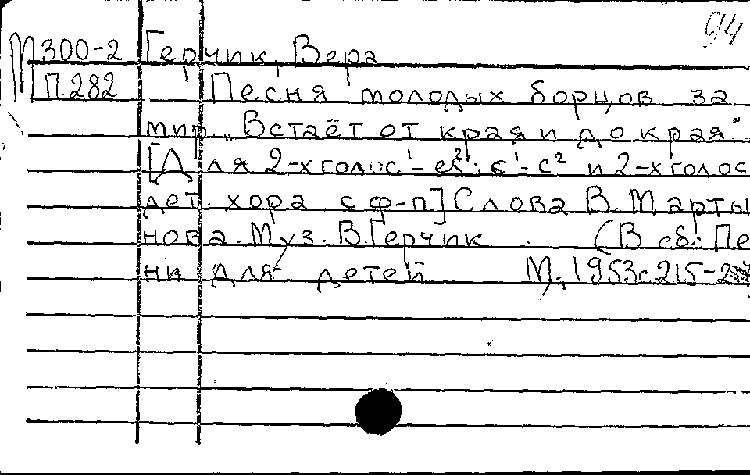 94
М 300-2 Герчик, Вера
П 282 Песня молодых борцов за
мир „Встаёт от края и до края"
[Для 2-х голос и 2-х голос
дет. хора с ф-п] Слова В. Марты
нова. Муз. В. Герчик. (В сб: Пе
ни для детей М., 1953 с. 215-2